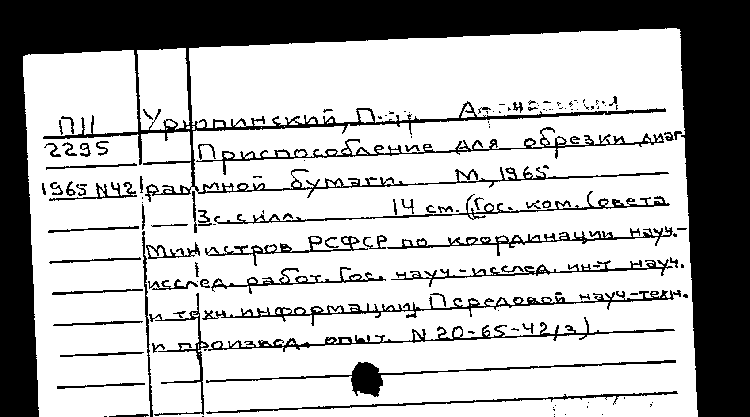 П11 Урюпинский, Петр Афанасьевич
2295 Приспособление для обрезки диаг-
1965 N42 раммной бумаги. М., 1965
3с. с илл. 14 см. (Гос. ком. Совета
Министров РСФСР по координации науч.-
исслед. работ. Гос. науч.-исслед. ин-т науч.
и техн. информации. Передовой науч.-техн.
и производ. опыт. N 20-65-42/3).